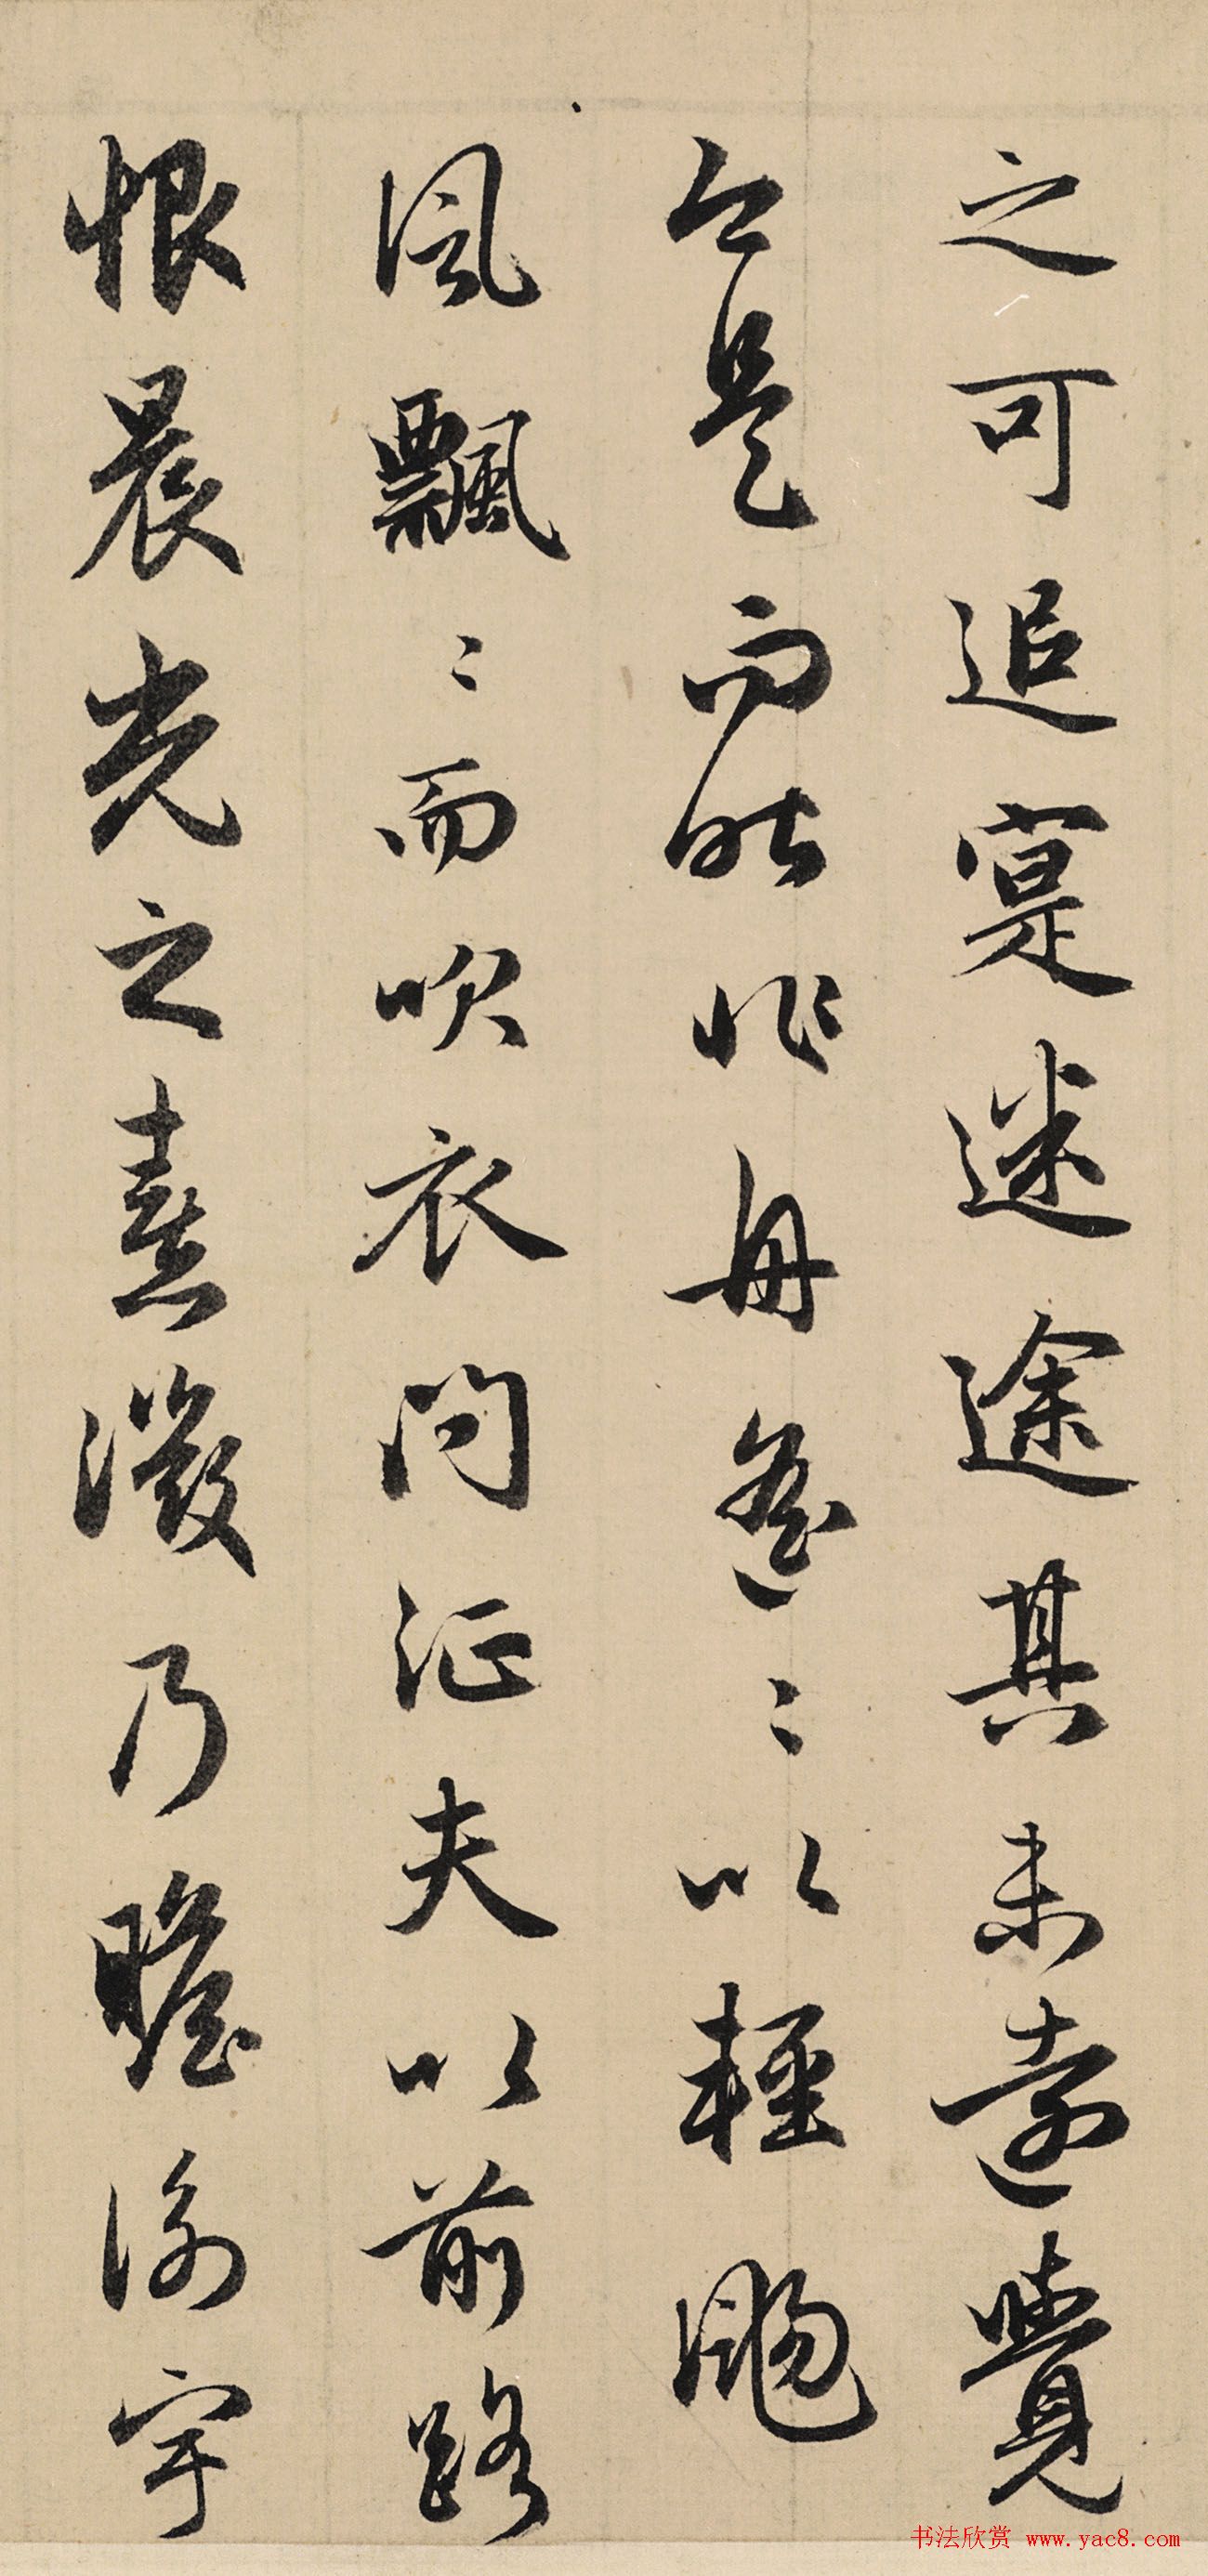 之可追寔迷途其未遠覺
今是而昨非舟遥〻以輕颺
風飄〻而吹衣問征夫以前路
恨晨光之熹微乃瞻衡宇
书法欣赏 www.yac8.com